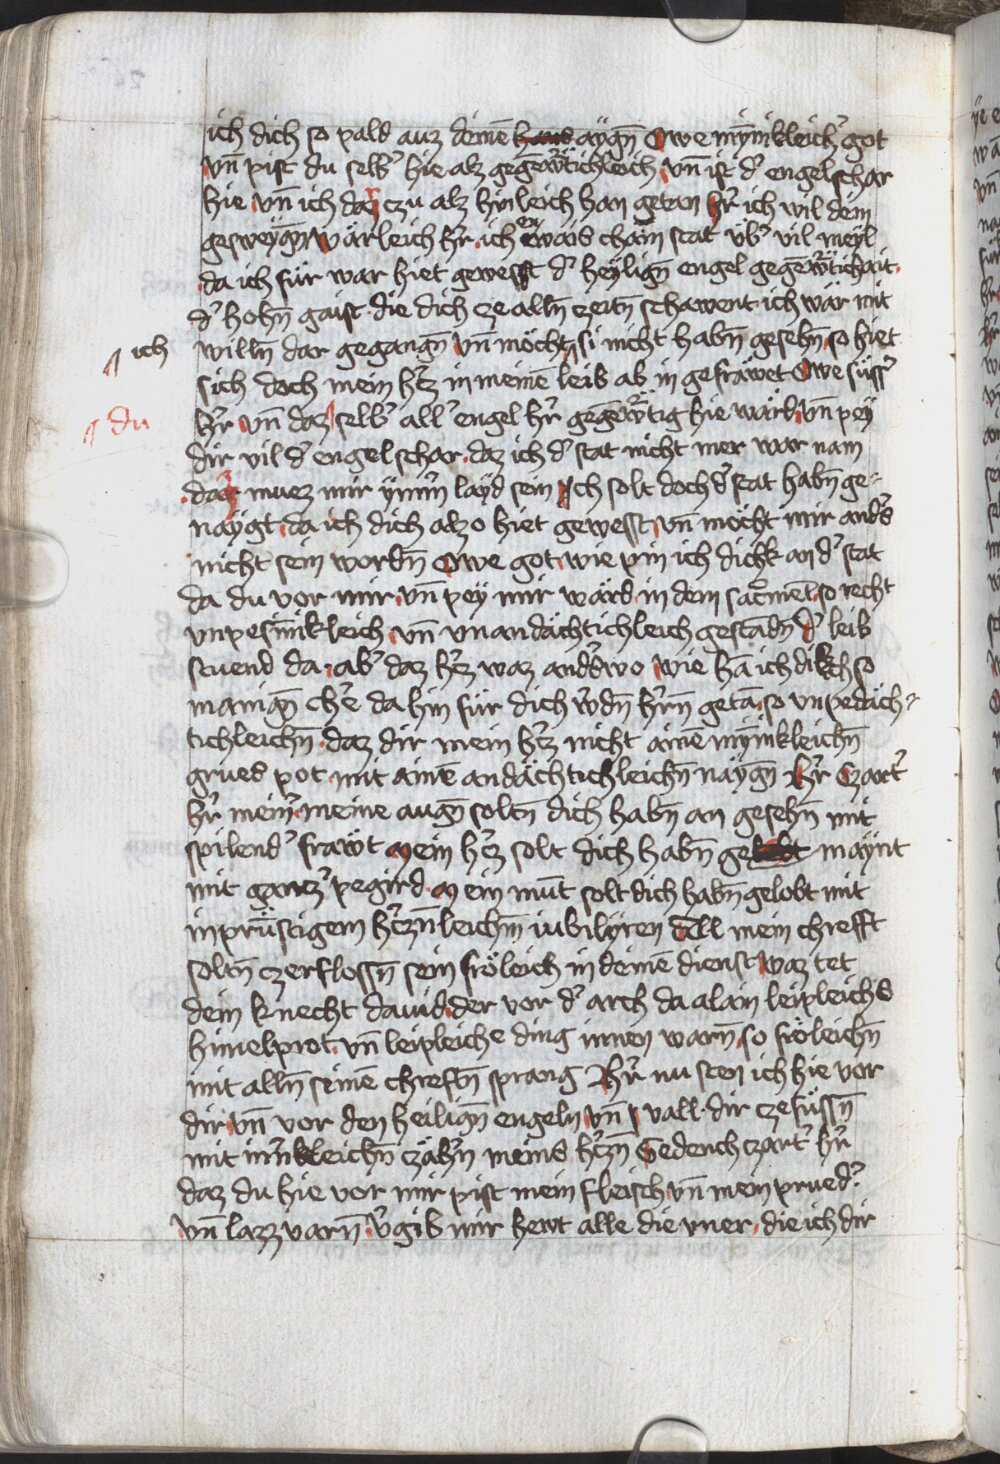 ich dich so pald auz deinē haus aygn̄ Owe mȳnikleichˀ got
vn̄ pist du selbˀ hie alz gegēwˀtichleich vn̄ ist dˀ engel schar
hie vn̄ ich daz czu alz hinleich han getan hˀr ich wil dein
gesweygn̄ wärleich hˀr ich enwais chain stat vbˀ vil meyl
da ich für war hiet gewesst dˀ heylign̄ engel gegēwˀtichait
dˀ hohn̄ gaist die dich cze alln̄ czeitn̄ schawent ich wär mit
¶ ich
willn̄ dar gegangn̄ vn̄ möcht ¶ si nicht habn̄ gesehn̄ so hiet
sich doch mein hˀtz in meinē leib ab in gefräwet Owe süssˀ
¶ du
hˀr vn̄ daz ¶ selbˀ allˀ engel hˀr gegēwˀtig hie wärd vn̄ pey
dir vil dˀ engel schar daz ich dˀ stat nicht mer war nam
daz muez mir ymm̄ layd sein Ich solt doch dˀ stat habn̄ ge⸗
naygt da ich dich alzo hiet gewesst vn̄ möcht mir andˀs
nicht sein wordn̄ Owe got wie pin ich dichk an dˀ stat
da du vor mir vn̄ pey mir wärd in dem sacˀmēt so recht
vnpesīnikleich vn̄ vnandächtichleich gestādn̄ dˀ leib
stuend da abˀ daz hˀtz waz andˀswo wie hā ich dikch so
manign̄ chˀe da hin für dich wˀdn̄ hˀrn̄ getā so vnpedäch⸗
tichleichn̄ daz dir mein hˀtz nicht ainē mȳnikleichn̄
grued pot mit ainē andächtichleichn̄ naygn̄ Hˀr Czartˀ
hˀr meinˀ meine augn̄ soltn̄ dich habn̄ an gesehn̄ mit
spilendˀ fräwt Mein hˀtz solt dich habn̄ gelobt maynt
mit gantzˀ pegird Mein mūt solt dich habn̄ gelobt mit
inprünstigem hˀtzn̄leichm̄ iubilyren All mein chrefft
soltn̄ czerflossn̄ sein fröleich in deinē dienst waz tet
dein knecht dauid der vor dˀ arch da alain leipleichs
himelprot vn̄ leipleiche ding innen warn̄ so fröleichn̄
mit alln̄ seinē chreftn̄ sprang Hˀr nu sten ich hie vor
dir vn̄ vor den heilign̄ engeln vn̄ vall dir czefüssn̄
mit inˀnkleichn̄ czähˀn meins hˀtzn̄ Gedench czartˀ hˀr
daz du hie vor mir pist mein fleisch vn̄ mein pruedˀ
vn̄ lazz varn̄ vˀgib mir hewt alle die vner die ich dir